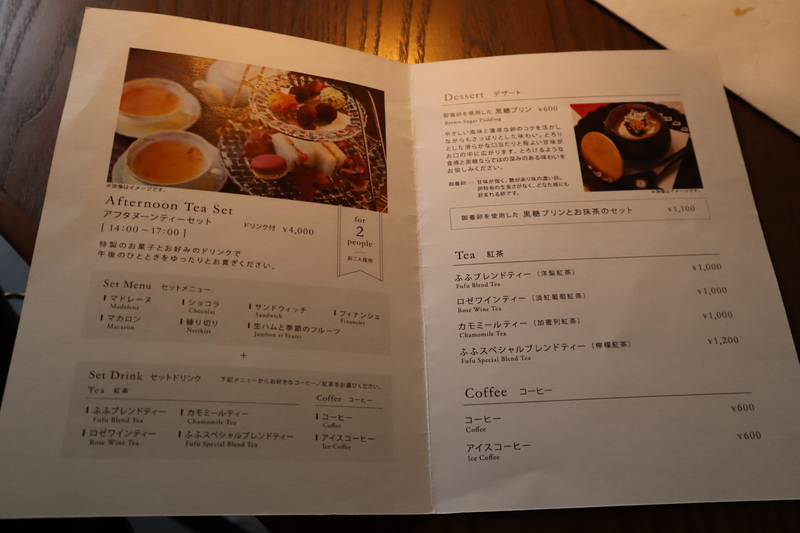 ※画像はイメージです。
Afternoon Tea Set
アフタヌーンティーセット
ドリンク付 ¥4,000
[ 14:00～17:00 ]
特製のお菓子とお好みのドリンクで
午後のひとときをゆったりとお寛ぎください。
for
2
people
お二人様用
Set Menu セットメニュー
マドレーヌ
Madeleine
ショコラ
Chocolat
サンドウィッチ
Sandwich
フィナンシェ
Financier
マカロン
Macaron
練り切り
Nerikiri
生ハムと季節のフルーツ
Jambon et Fruits
+
Set Drink セットドリンク 下記メニューからお好きなコーヒー／紅茶をお選びください。
Tea 紅茶
Coffee コーヒー
ふふブレンドティー
Fufu Blend Tea
カモミールティー
Chamomile Tea
コーヒー
Coffee
ロゼワインティー
Rose Wine Tea
ふふスペシャルブレンドティー
Fufu Special Blend Tea
アイスコーヒー
Ice Coffee
Dessert デザート
御養卵を使用した 黒糖プリン ¥600
Brown Sugar Pudding
やさしい風味と濃厚な卵のコクを活かし
ながらもさっぱりとした味わい。とろり
とした滑らかな口当たりと程よい甘味が
お口の中に広がります。とろけるような
食感と黒糖ならではの深みのある味わいを
お愉しみください。
御養卵… 甘味が強く、艶があり味の濃い卵。
卵特有の生臭さがなく、どなた様にも
好まれる卵です。
※画像はイメージです。
御養卵を使用した 黒糖プリンとお抹茶のセット ¥1,100
Tea 紅茶
ふふブレンドティー（洋梨紅茶） ¥1,000
Fufu Blend Tea
ロゼワインティー（淡紅葡萄紅茶） ¥1,000
Rose Wine Tea
カモミールティー（加蜜列紅茶） ¥1,000
Chamomile Tea
ふふスペシャルブレンドティー（檸檬紅茶） ¥1,200
Fufu Special Blend Tea
Coffee コーヒー
コーヒー ¥600
Coffee
アイスコーヒー ¥600
Ice Coffee